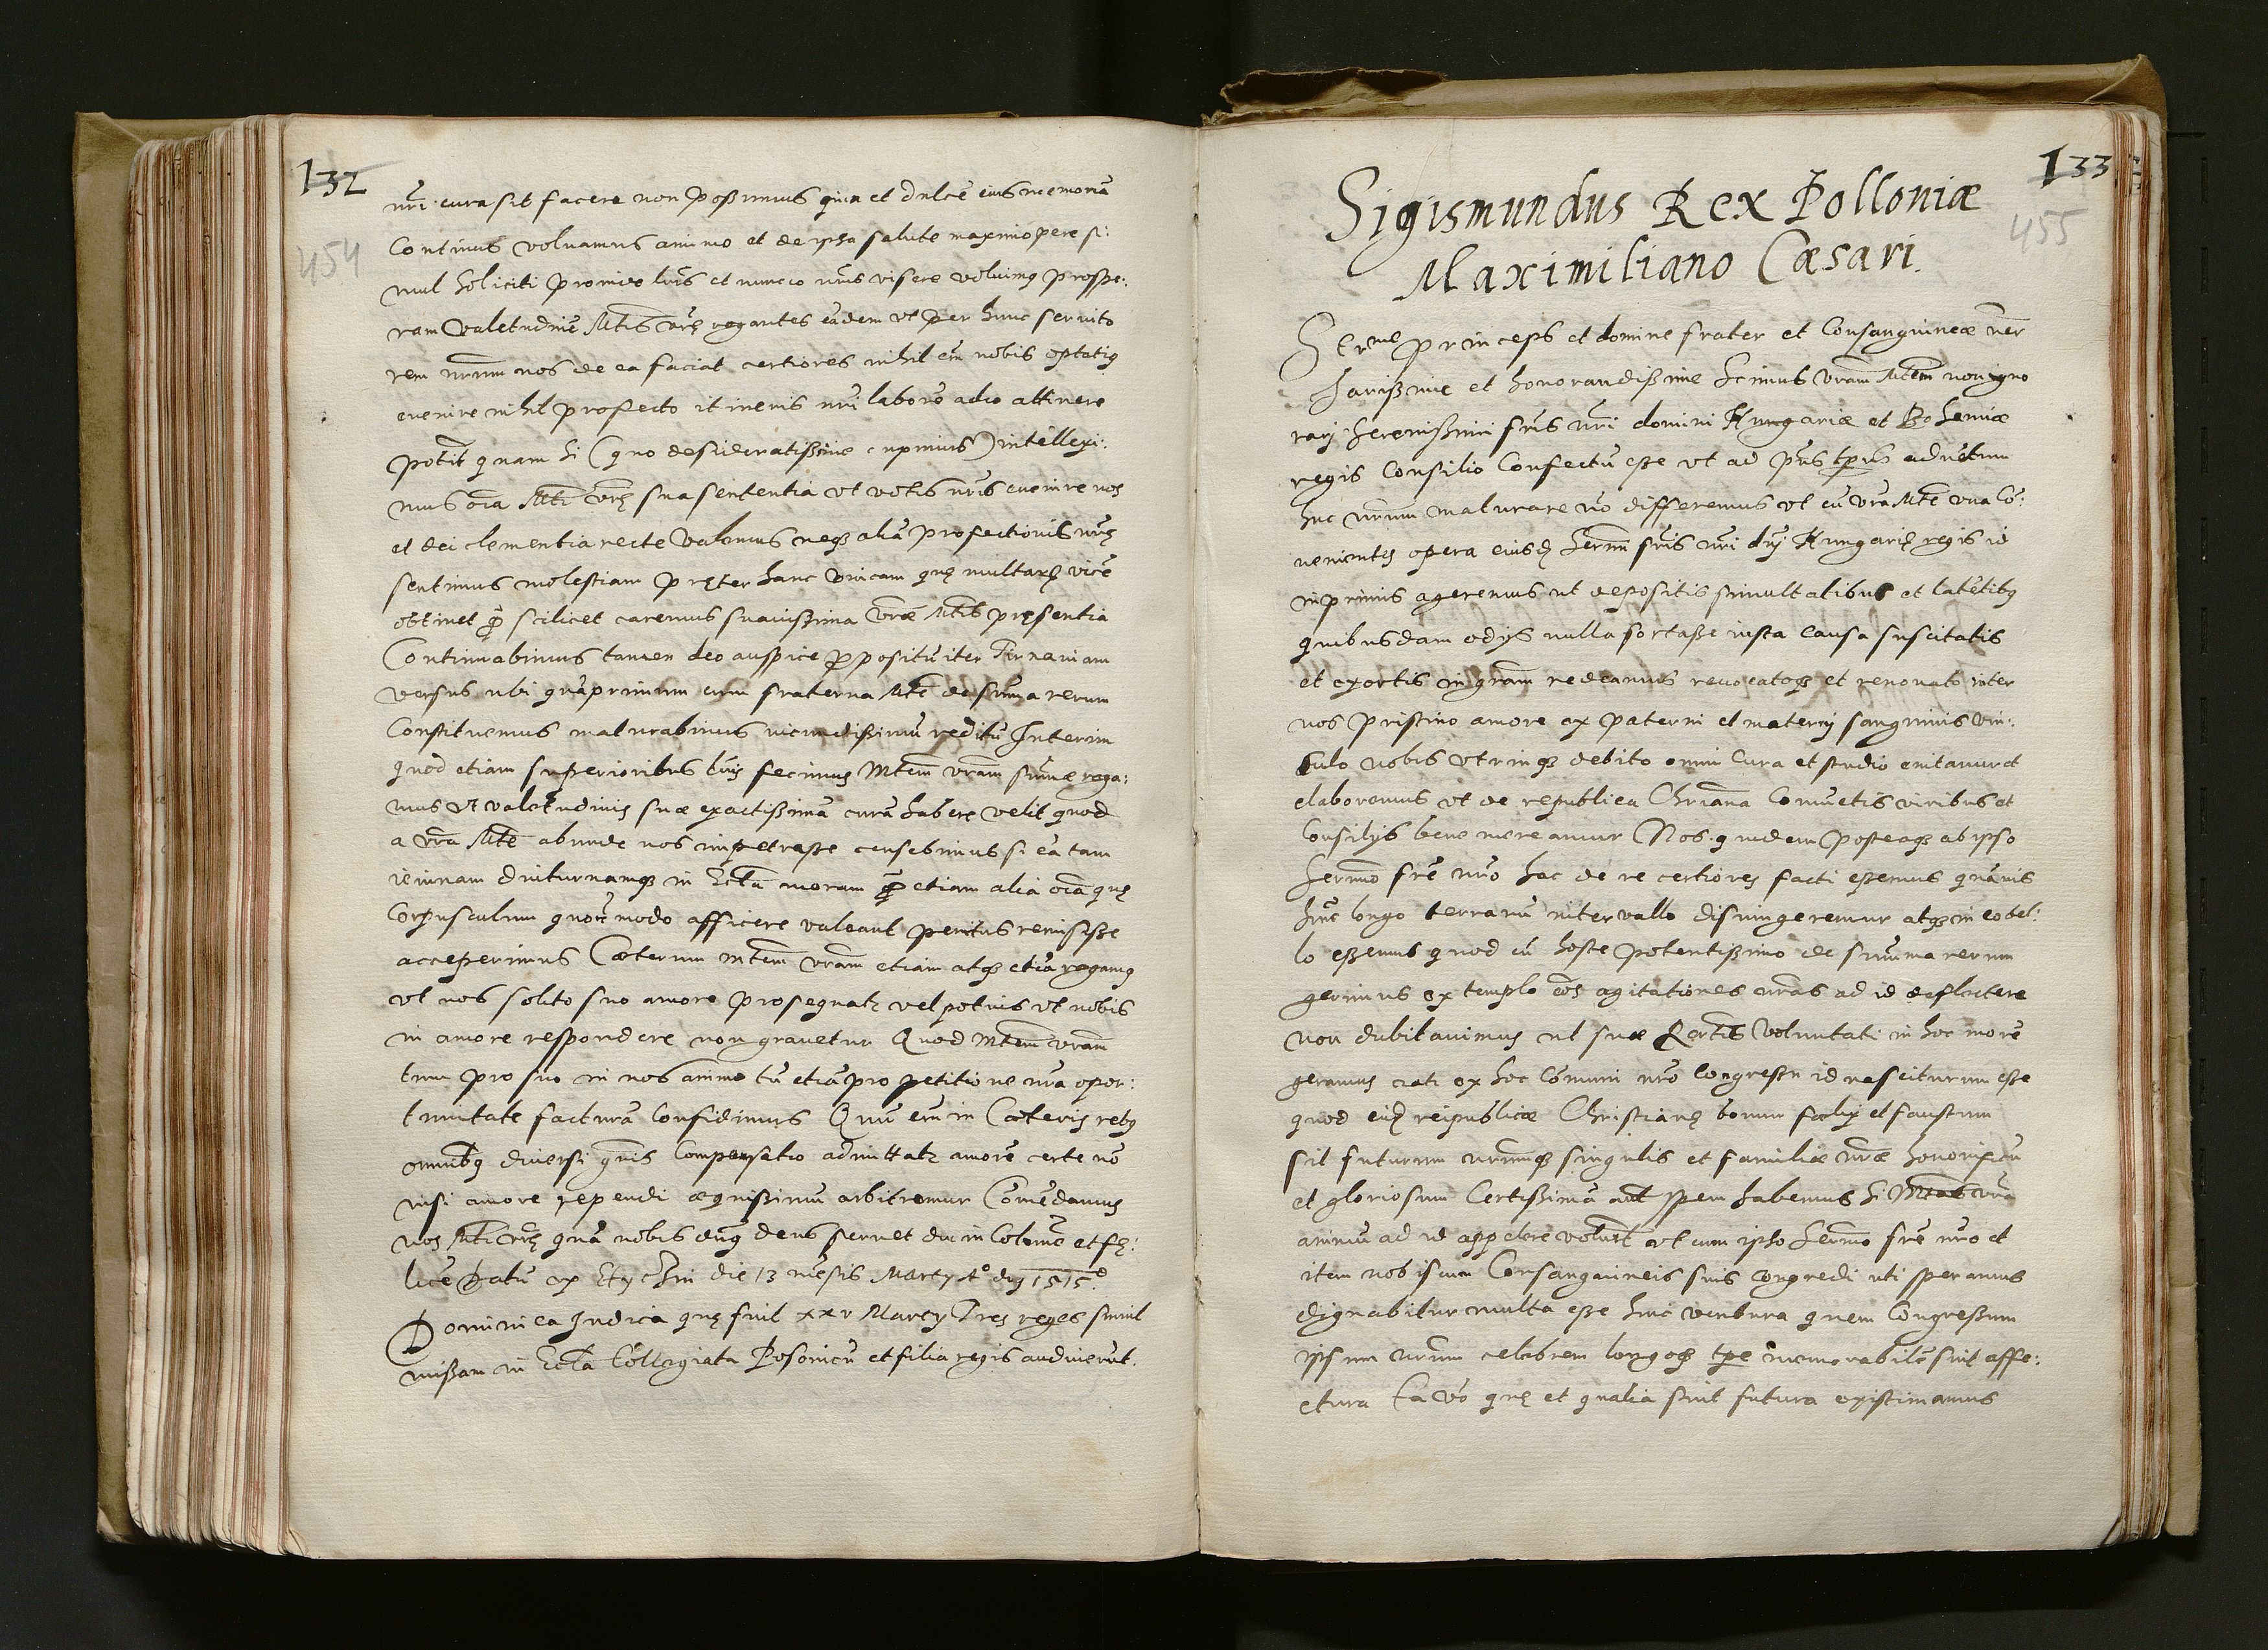 132
454
nr̃i cura sit facere non possimus quin et dulcẽ eius memoriã
Continuo voluamus animo et de ipsa salute maximopere si:
mul soliciti proinde lr̃is et nuncio nr̃is visere voluimꝰ prospe:
ram valetudinẽ Mt̃is vr̃ę rogantes eãdem vt per hunc seruito
rem nr̃um nos de ea faciat certiores nihil em̃ nobis optatiꝰ
euenire nihil profecto itineris nr̃i laborẽ adeo attinere
poterit quam si (quo desideratissime cupimus) intellexi:
mus oĩa Mt̃i vr̃ę sua sententia vt votis nr̃is euenire nos
et dei clementia recte valemus neqꝫ aliã profectionis nr̃ę
sentimus molestiam pręter hanc vnicam quę multarũ vicẽ
obtinet ꝙ̃ scilicet caremus suauissima vr̃æ Mt̃is pręsentia
Continuabimus tamen deo auspice ꝓpositũ iter Tirnauiam
versus ubi quãprimum cum fraterna Mt̃e de sum̃a rerum
Constituemus maturabimus iucundissimũ reditũ Interim
quod etiam superioribus lr̃is fecimus Mt̃em vr̃am sum̃e roga:
mus vt valetudinis suæ exactissimã curã habere velit quod
a vr̃a Mt̃e abunde nos impetrasse censebimus si eã tam
ieiunam diuturnamqꝫ in Eccl̃ia moram ꝙ̃ etiam alia oĩa quę
Corpusculum quouismodo afficere valeant penitus remisisse
acceperimus Cæterum Mt̃em vr̃am etiam atqꝫ etiã rogamꝰ
vt nos solito suo amore prosequatꝛ vel potius vt nobis
in amore respondere non grauetur Quod Mt̃em vr̃am
tum pro suo in nos animo tũ etiã pro petitione nr̃a opor:
tunitate facturã Confidimus Quũ em̃ in Cæteris rebꝰ
omnibꝰ diuersi gñis Compensatio admittatꝛ amorẽ certe nõ
nisi amore rependi æquissimũ arbitremur Com̃endamus
nos Mt̃i vr̃ę quã nobis dñꝰ deus seruet diu in Colume et fę:
licẽ Datũ ex 13 mẽsis Marty Aº dñj 1515º
Dominica Iudica quę fuit xxv Marty Tres reges simul
missam in Eccl̃ia Collegiata Posoniẽ cũ et filia regis audiuerũt.
133
455
Sigismundus Rex Polloniæ
Maximiliano Cæsari.
Serme princeps et domine frater et Consanguineæ nr̃
Charissime et honorandissime Scimus vr̃am Mt̃em non igno
rare Serenissimi fr̃is nr̃i domini Hungariæ et Bohemiæ
regis Consilio Confectũ esse vt ad pñs tp̃us aduẽtum
huc nr̃um maturare nõ differemus vt cũ vr̃a Mt̃e vna Cõ:
uenientes opera eiusdẽ Sermi fr̃is nr̃i dñj Hungarię regis id
inprimis ageremus ut depositis simultatibus et latẽtibꝰ
quibusdam odijs nulla fortasse iusta Causa suscitatis
et exortis in gr̃am redeamus reuocatoqꝫ et renouato inter
nos pristino amore ex paterni et materni sanguinis vin:
culo nobis vtrinqꝫ debito omni Cura et studio enitamur et
elaboremus vt de republica Chr̃iana Coniũctis viribus et
Consilijs bene mereamur Nos quidem posteaqꝫ ab ipso
Sermo fr̃e nr̃o hac de re certiores facti essemus quãuis
hinc longo terrarũ interuallo disiungeremur atqꝫ in eo bel:
lo essemus quod cũ hoste potentissimo de summa rerum
gerimus extemplo oẽs agitationes nr̃as ad id deflectere
non dubitauimus ut suæ Sertis voluntati in hoc morẽ
geramus rati ex hoc Cõmuni nr̃o congressu id nasciturum esse
quod eidẽ reipublicæ Christianę bonum fælix et faustum
sit futurum nr̃umqꝫ singulis et familiæ nr̃æ honorificũ
et gloriosum Certissimã aũt spem habemus Si Mt̃as vr̃a
animũ ad id appellere voluerit vt cum ipso Sermo fr̃e nr̃o et
item nobiscum Consanguineis suis congredi uti speramus
dignabitur multa esse huic ventura quem Congressum
ipsum nr̃um celebrem longoqꝫ tp̃e memorabilẽ sint affe:
ctura Ea vo quę et qualia sint futura existimamus